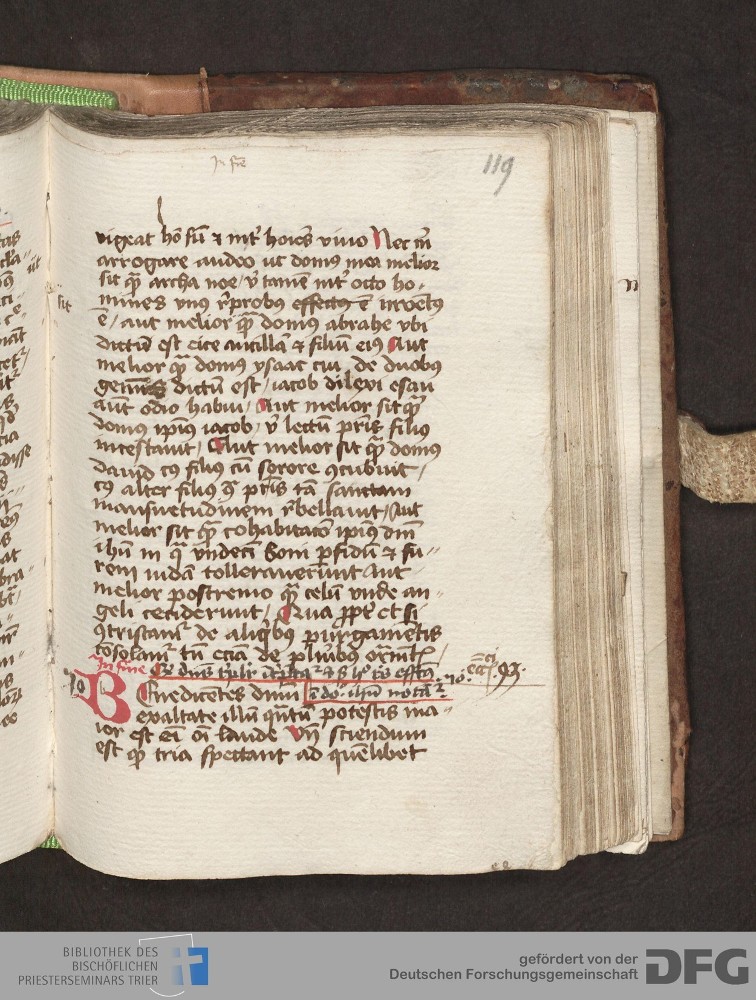 In fine
119
vigeat hō sū & int̄ hoies vivo Nec m̄
arrogare audeo ut domus mea melior
sit q̄ archa noe / ū tamē int̄ octo ho-
sit
mines vnus r̄probus effectus ē invētus
ē / aut melior q̄ domus abrahe vbi
dictū est eice ancillā & filiū eius Aut
melior q̄ domus ysaac cui de duobus
gemīis dictū est / iacob dilexi esau
aūt odio habui / Aut melior sit q̄
domus ip̄ius iacob / ū lectū pr̄is filius
incestavit / Aut melior sit q̄ domus
dauid cuius filius cū sorore ꝯcubuit /
cuius alter filius ꝯ pr̄is tā sanctam
mansuetudinem r̄bellavit / Aut
melior sit q̄ cohabitatō ip̄ius dn̄i
ihū in q̄ vndecī boni p̄fidū & fu-
rem iudā tolleraverūt Aut
melior postremo q̄ celū vnde an-
geli ceciderunt / Qua ꝓpt̄ et si
ꝯtristam̄ de aliq̇bus purgamētis
cōsolam̄ tn̄ etiā de plurībus
In fine
Benedicentes dn̄m
exaltate illū q̄ntū potestis ma-
ior est ēi oī laude Vn̄ sciendum
est q̄ tria spectant ad quēlibet
BIBLIOTHEK DES
BISCHÖFLICHEN
PRIESTERSEMINARS TRIER
gefördert von der
Deutschen Forschungsgemeinschaft
DFG